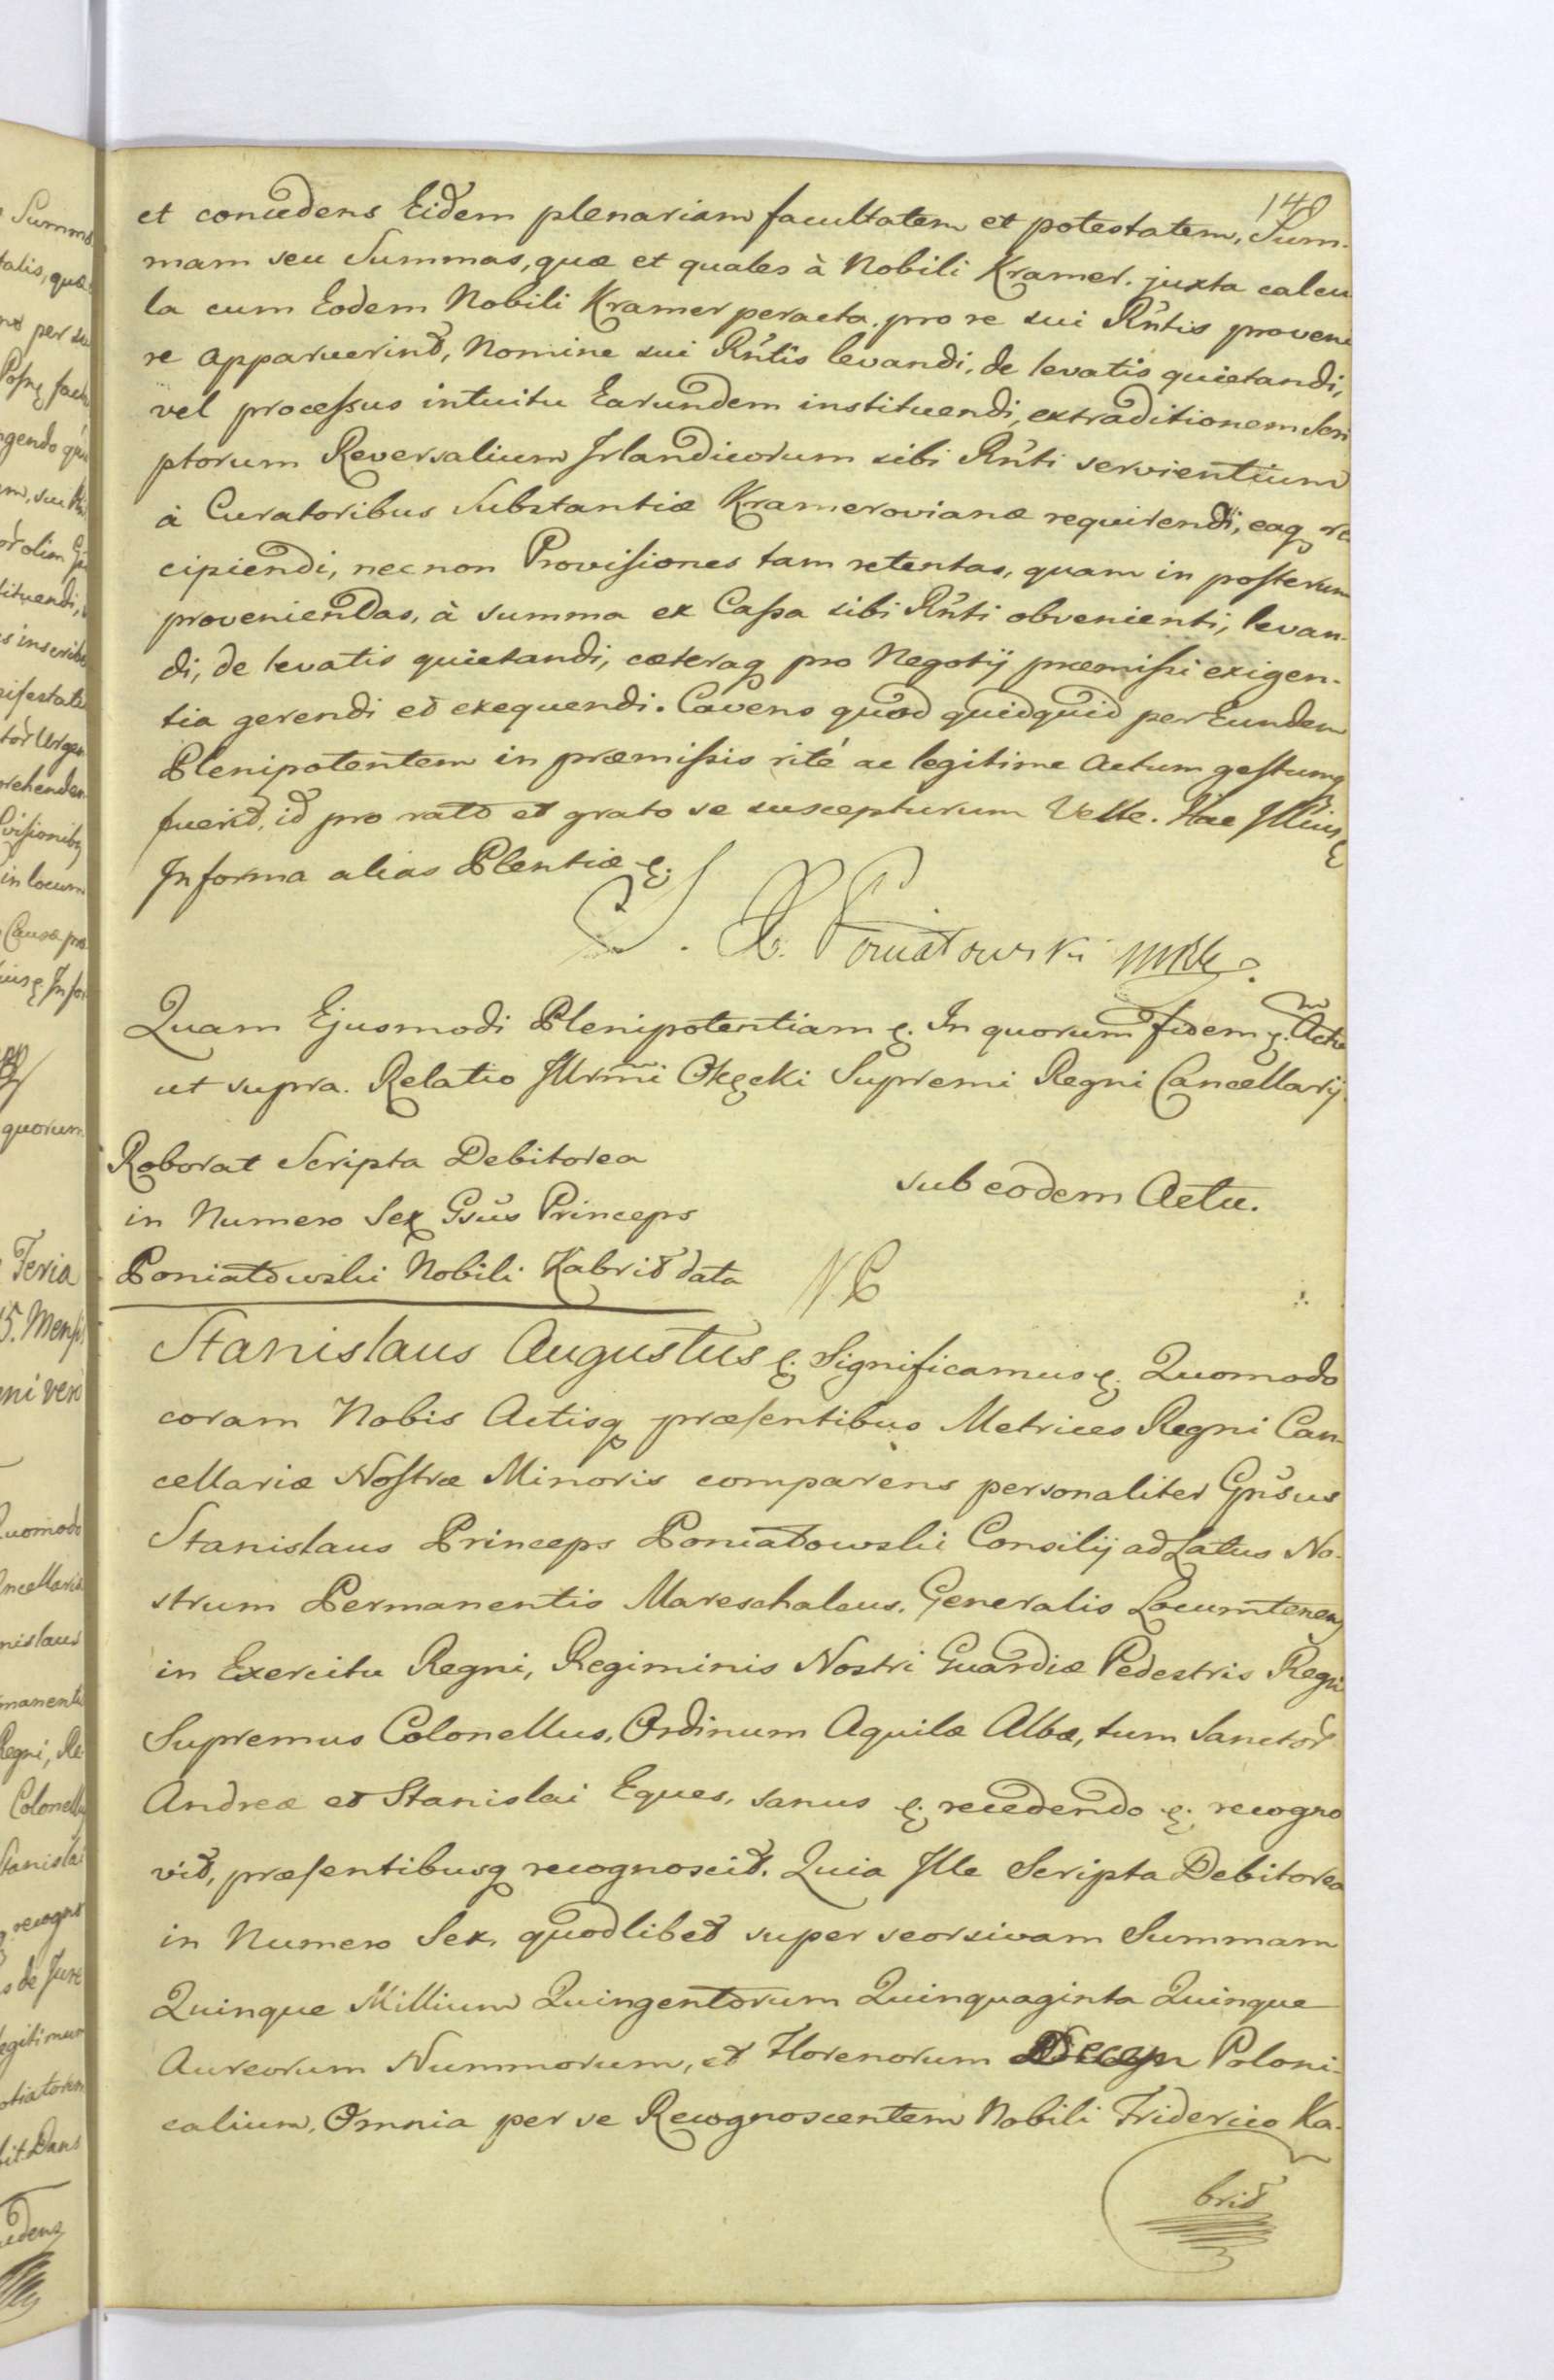 140
et concedens Eidem plenariam facultatem et potestatem, Sum-
mam seu Summas, quæ et quales à Nobili Kramer. juxta calcu
la cum Eodem Nobili Kramer peracta, pro re sui Rñtis proveni
re apparuerint, Nomine sui Rñtis levandi, de levatis quietandi,
vel processus intuitu Earundem instituendi, extraditionem Scri
ptorum Reversalium Irlandicorum sibi Rñti servientium
à Curatoribus Substantiæ Kramerovianæ requirendi, eaq re
cipiendi, necnon Provisiones tam retentas, quam in posterum
proveniendas, à summa ex Cassa sibi Rñti obvenienti, levan-
di, de levatis quietandi, cæteraq pro Negotij præmissi exigen-
tia gerendi et exequendi. Cavens quod quidquid per Eundem
Plenipotentem in præmissis rité ac legitime Actum gestumq
fuerit, id pro rato et grato se suscepturum Velle. Hac Illius
In forma alias Plentiæ
S. P. Poniatowski mp
Quam Ejusmodi Plenipotentiam In quorum fidem Actu
ut supra. Relatio Illrmi Okęcki Supremi Regni Cancellarij
Roborat Scripta Debitorea
in Numero Sex Gsus Princeps
Poniatowski Nobili Kabrit data
sub eodem Actu.
Stanislaus Augustus Significamus Quomodo
coram Nobis Actisq præsentibus Metrices Regni Can-
cellariæ Nostræ Minoris comparens personaliter Gnsus
Stanislaus Princeps Poniatowski Consilij ad Latus No-
strum Permanentis Mareschalcus, Generalis Locumtenens
in Exercitu Regni, Regiminis Nostri Guardiæ Pedestris Regni
Supremus Colonellus, Ordinum Aquilæ Albæ, tum Sanctor
Andreæ et Stanislai Eques, sanus recedendo recogno
vit, præsentibusq recognoscit. Quia Ille Scripta Debitorea
in Numero Sex, quodlibet super seorsivam Summam
Quinque Millium Quingentorum Quinquaginta Quinque
Aureorum Nummorum, et Florenorum Decem Poloni-
calium, Omnia per se Recognoscentem Nobili Friderico Ka-
brit